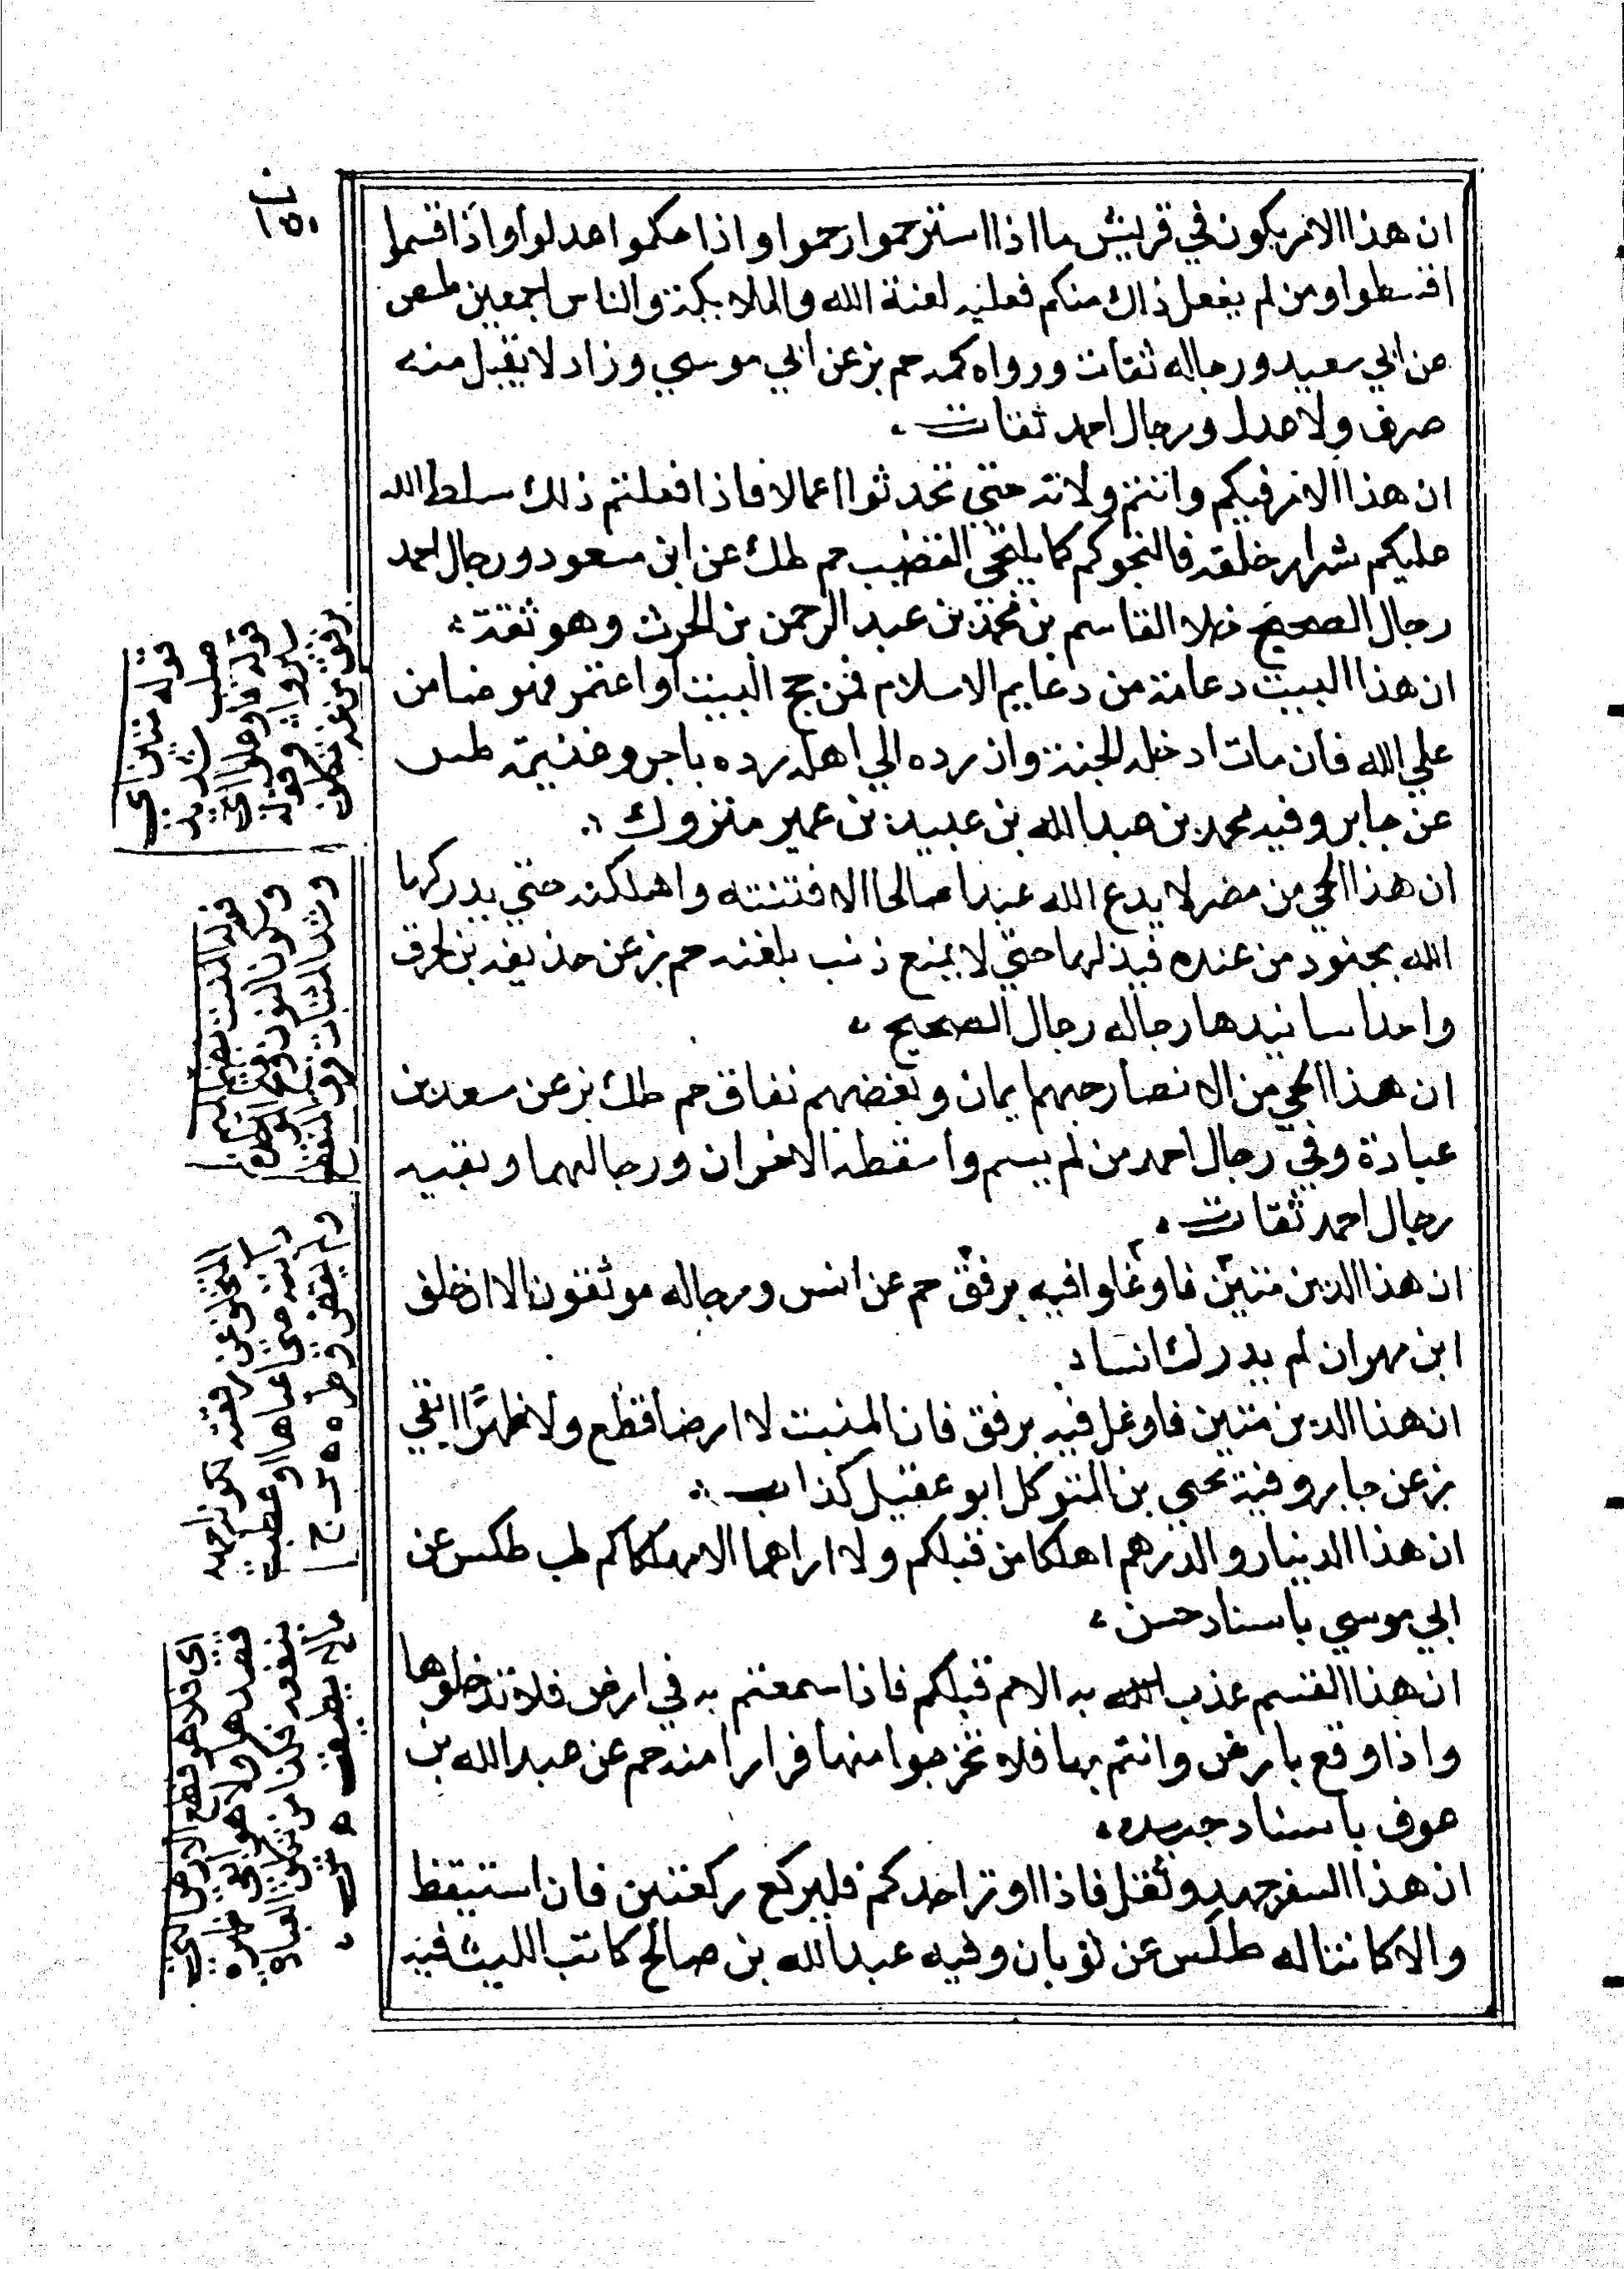 ان هذا الامر يكون في قريش ما اذا استرحموا رحموا واذا حكموا عدلوا واذا قسموا
اقسطوا ومن لم يفعل ذلك منكم فعليه لعنة الله والملايكة والناس اجمعين طمص
عن ابي سعيد ورجاله ثقات ورواه كمه حم بز عن ابي موسي وزاد لا يقبل منه
صرف ولا عدل ورجال احمد ثقات
ان هذا الامر فيكم وانتم ولاته حتي تحدثوا اعمالا فاذا فعلتم ذلك سلط الله
عليكم شرار خلقه فالتحوكم كما يلتحي القضيب حم طك عن ابن مسعود ورجال احمد
رجال الصحيح خلا القاسم بن محمد بن عبد الرحمن بن الحرث وهو ثقة
ان هذا البيت دعامة من دعايم الاسلام فمن حج البيت او اعتمر فهو ضامن
علي الله فان مات ادخله الجنة وان رده الي اهله رده باجر وغنيمة طس
عن جابر وفيه محمد بن عبد الله بن عبيد بن عمير متروك
ان هذا الحي من مضر لا يدع الله عبدا صالحا الا فتنته واهلكته حتي يدركها
الله بجنود من عنده فيذلها حتي لا يمنع ذنب بلغته حم بز عن حذيفه بن طرق
واحد اسانيدها رجاله رجال الصحيح
ان هذا الحي من الانصار حبهم ايمان وبغضهم نفاق حم طك بز عن سعد بن
عبادة وفي رجال احمد من لم يسم واسقطه الاخران ورجالهما وبقيه
رجال احمد ثقات
ان هذا الدين متين فاوغلوا فيه برفق حم عن انس ورجاله موثقون الا ان خلف
ابن مهران لم يدرك انسا
ان هذا الدين متين فاوغل فيه برفق فان المنبت لا ارضا قطع ولا ظهرا ابقي
بز عن جابر وفيه يحيي بن المتوكل ابو عقيل كذاب
ان هذا الدينار والدرهم اهلكا من قبلكم ولا اراهما الا مهلكاكم طب طكس عن
ابي موسي باسناد حسن
ان هذا القسم عذب الله به الامم قبلكم فاذا سمعتم به في ارض فلا تدخلوها
واذا وقع بارض وانتم بها فلا تخرجوا منها فرارا منه حم عن عبد الله بن
عوف باسناد جيد
ان هذا السفر جهد وثقل فاذا اوتر احدكم فليركع ركعتين فان استيقظ
والا كانتا له طكس عن ثوبان وفيه عبد الله بن صالح كاتب الليث فيه
قوله متين اي
صلب شديد
قوله فاوغلوا اي
سيروا وقوله
برفق من غير تكلف